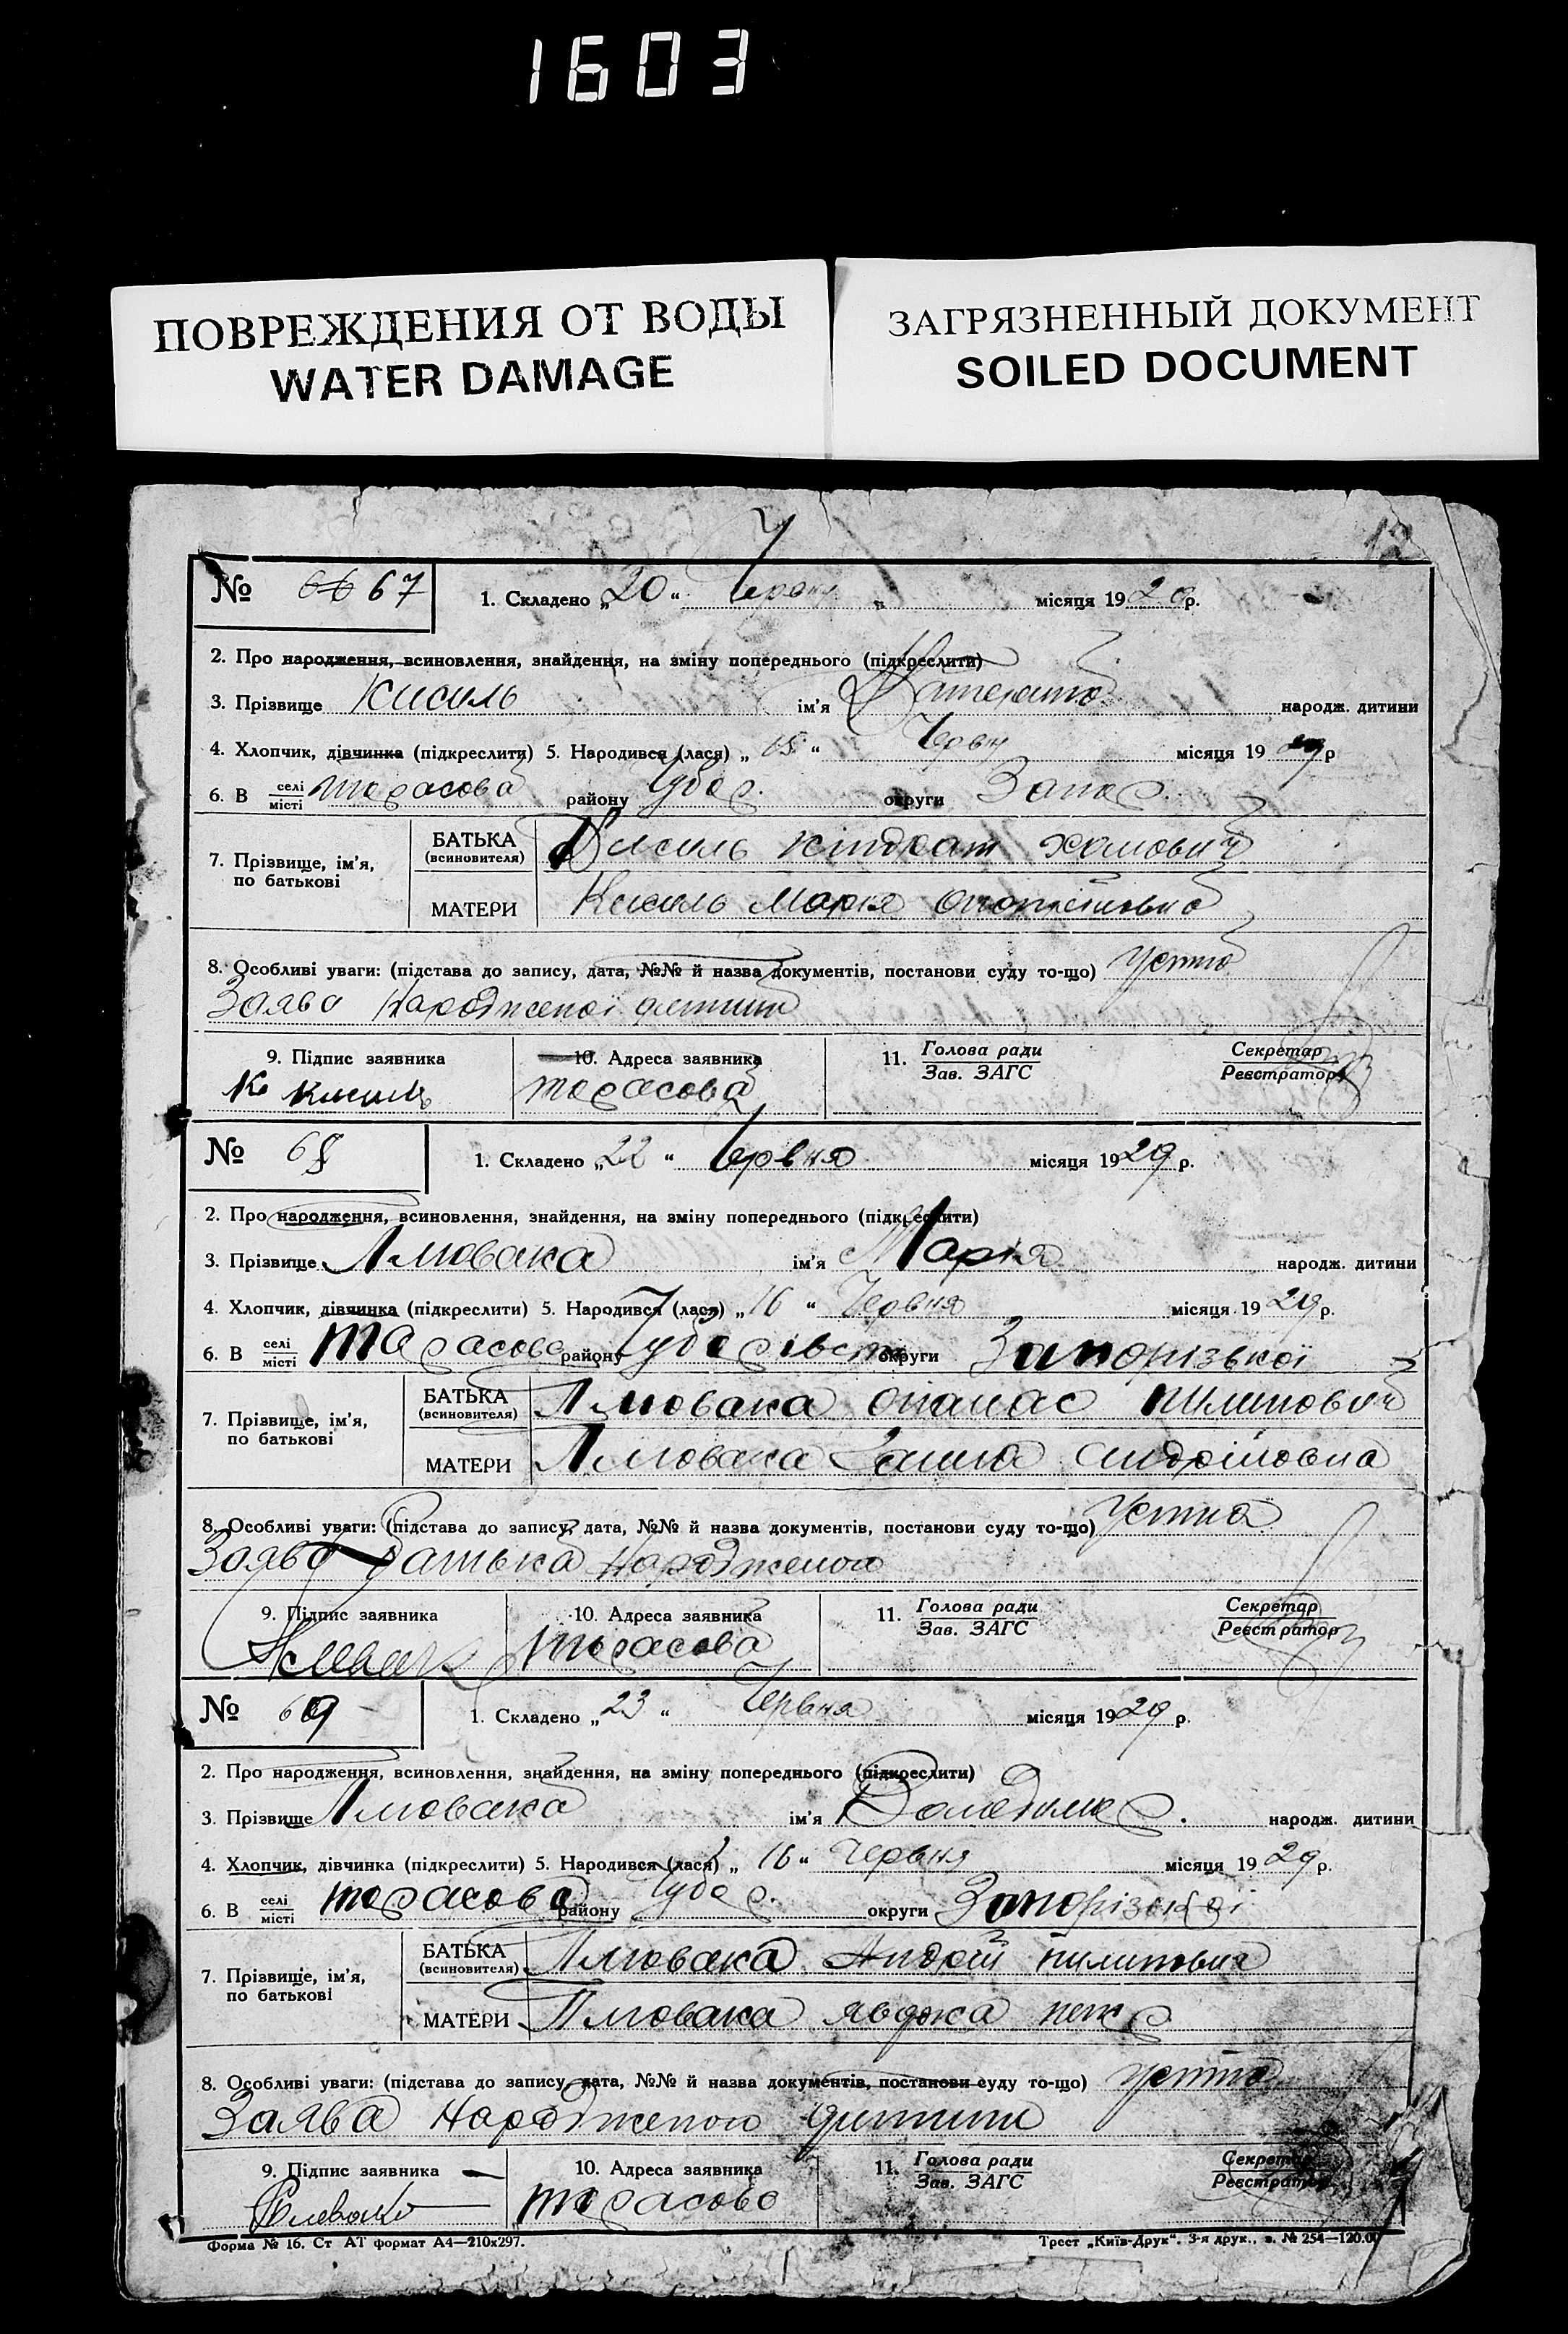 1603
ПОВРЕЖДЕНИЯ ОТ ВОДЫ
WATER DAMAGE
ЗАГРЯЗНЕННЫЙ ДОКУМЕНТ
SOILED DOCUMENT
№ 67 1. Складено „20“ місяця 192 р.
2. Про народження, всиновлення, знайдення, на зміну попереднього (підкреслити)
3. Прізвище Кисиль ім'я народж. дитини
4. Хлопчик, дівчинка (підкреслити) 5. Народився (лася) „ “ місяця 19 р
6. В селі/місті Тарасова району Чубар. округи Запор.
7. Прізвище, ім'я, по батькові
БАТЬКА (всиновителя) Кисиль Кіндрат
МАТЕРИ Кисиль Марія
8. Особливі уваги: (підстава до запису, дата, №№ й назва документів, постанови суду то-що) Устна
Заява народженої дитини
9. Підпис заявника 10. Адреса заявника 11. Голова ради/Зав. ЗАГС Секретар/Реєстратор
К Кисиль Тарасова
№ 68 1. Складено „22“ Червня місяця 1929 р.
2. Про народження, всиновлення, знайдення, на зміну попереднього (підкреслити)
3. Прізвище Плювака ім'я Марія народж. дитини
4. Хлопчик, дівчинка (підкреслити) 5. Народився (лася) „16“ Червня місяця 1929 р.
6. В селі/місті Тарасова району округи Запорізької
7. Прізвище, ім'я, по батькові
БАТЬКА (всиновителя) Плювака Опанас Пилипович
МАТЕРИ Плювака Ганна
8. Особливі уваги: (підстава до запису, дата, №№ й назва документів, постанови суду то-що) Устна
Заява батька народженого
9. Підпис заявника 10. Адреса заявника 11. Голова ради/Зав. ЗАГС Секретар/Реєстратор
Тарасова
№ 69 1. Складено „23“ Червня місяця 1929 р.
2. Про народження, всиновлення, знайдення, на зміну попереднього (підкреслити)
3. Прізвище Плювака ім'я Володимер. народж. дитини
4. Хлопчик, дівчинка (підкреслити) 5. Народився (лася) „16“ Червня місяця 1929 р.
6. В селі/місті Тарасова району Чубар. округи Запорізької
7. Прізвище, ім'я, по батькові
БАТЬКА (всиновителя) Плювака Андрій
МАТЕРИ Плювака Явдоха Петр
8. Особливі уваги: (підстава до запису, дата, №№ й назва документів, постанови суду то-що) Устна
Заява народженою дитини
9. Підпис заявника 10. Адреса заявника 11. Голова ради/Зав. ЗАГС Секретар/Реєстратор
Тарасова
Форма № 16. Ст АТ формат А4—210x297.
Трест „Київ-Друк“. 3-я друк., з. № 254—120.00